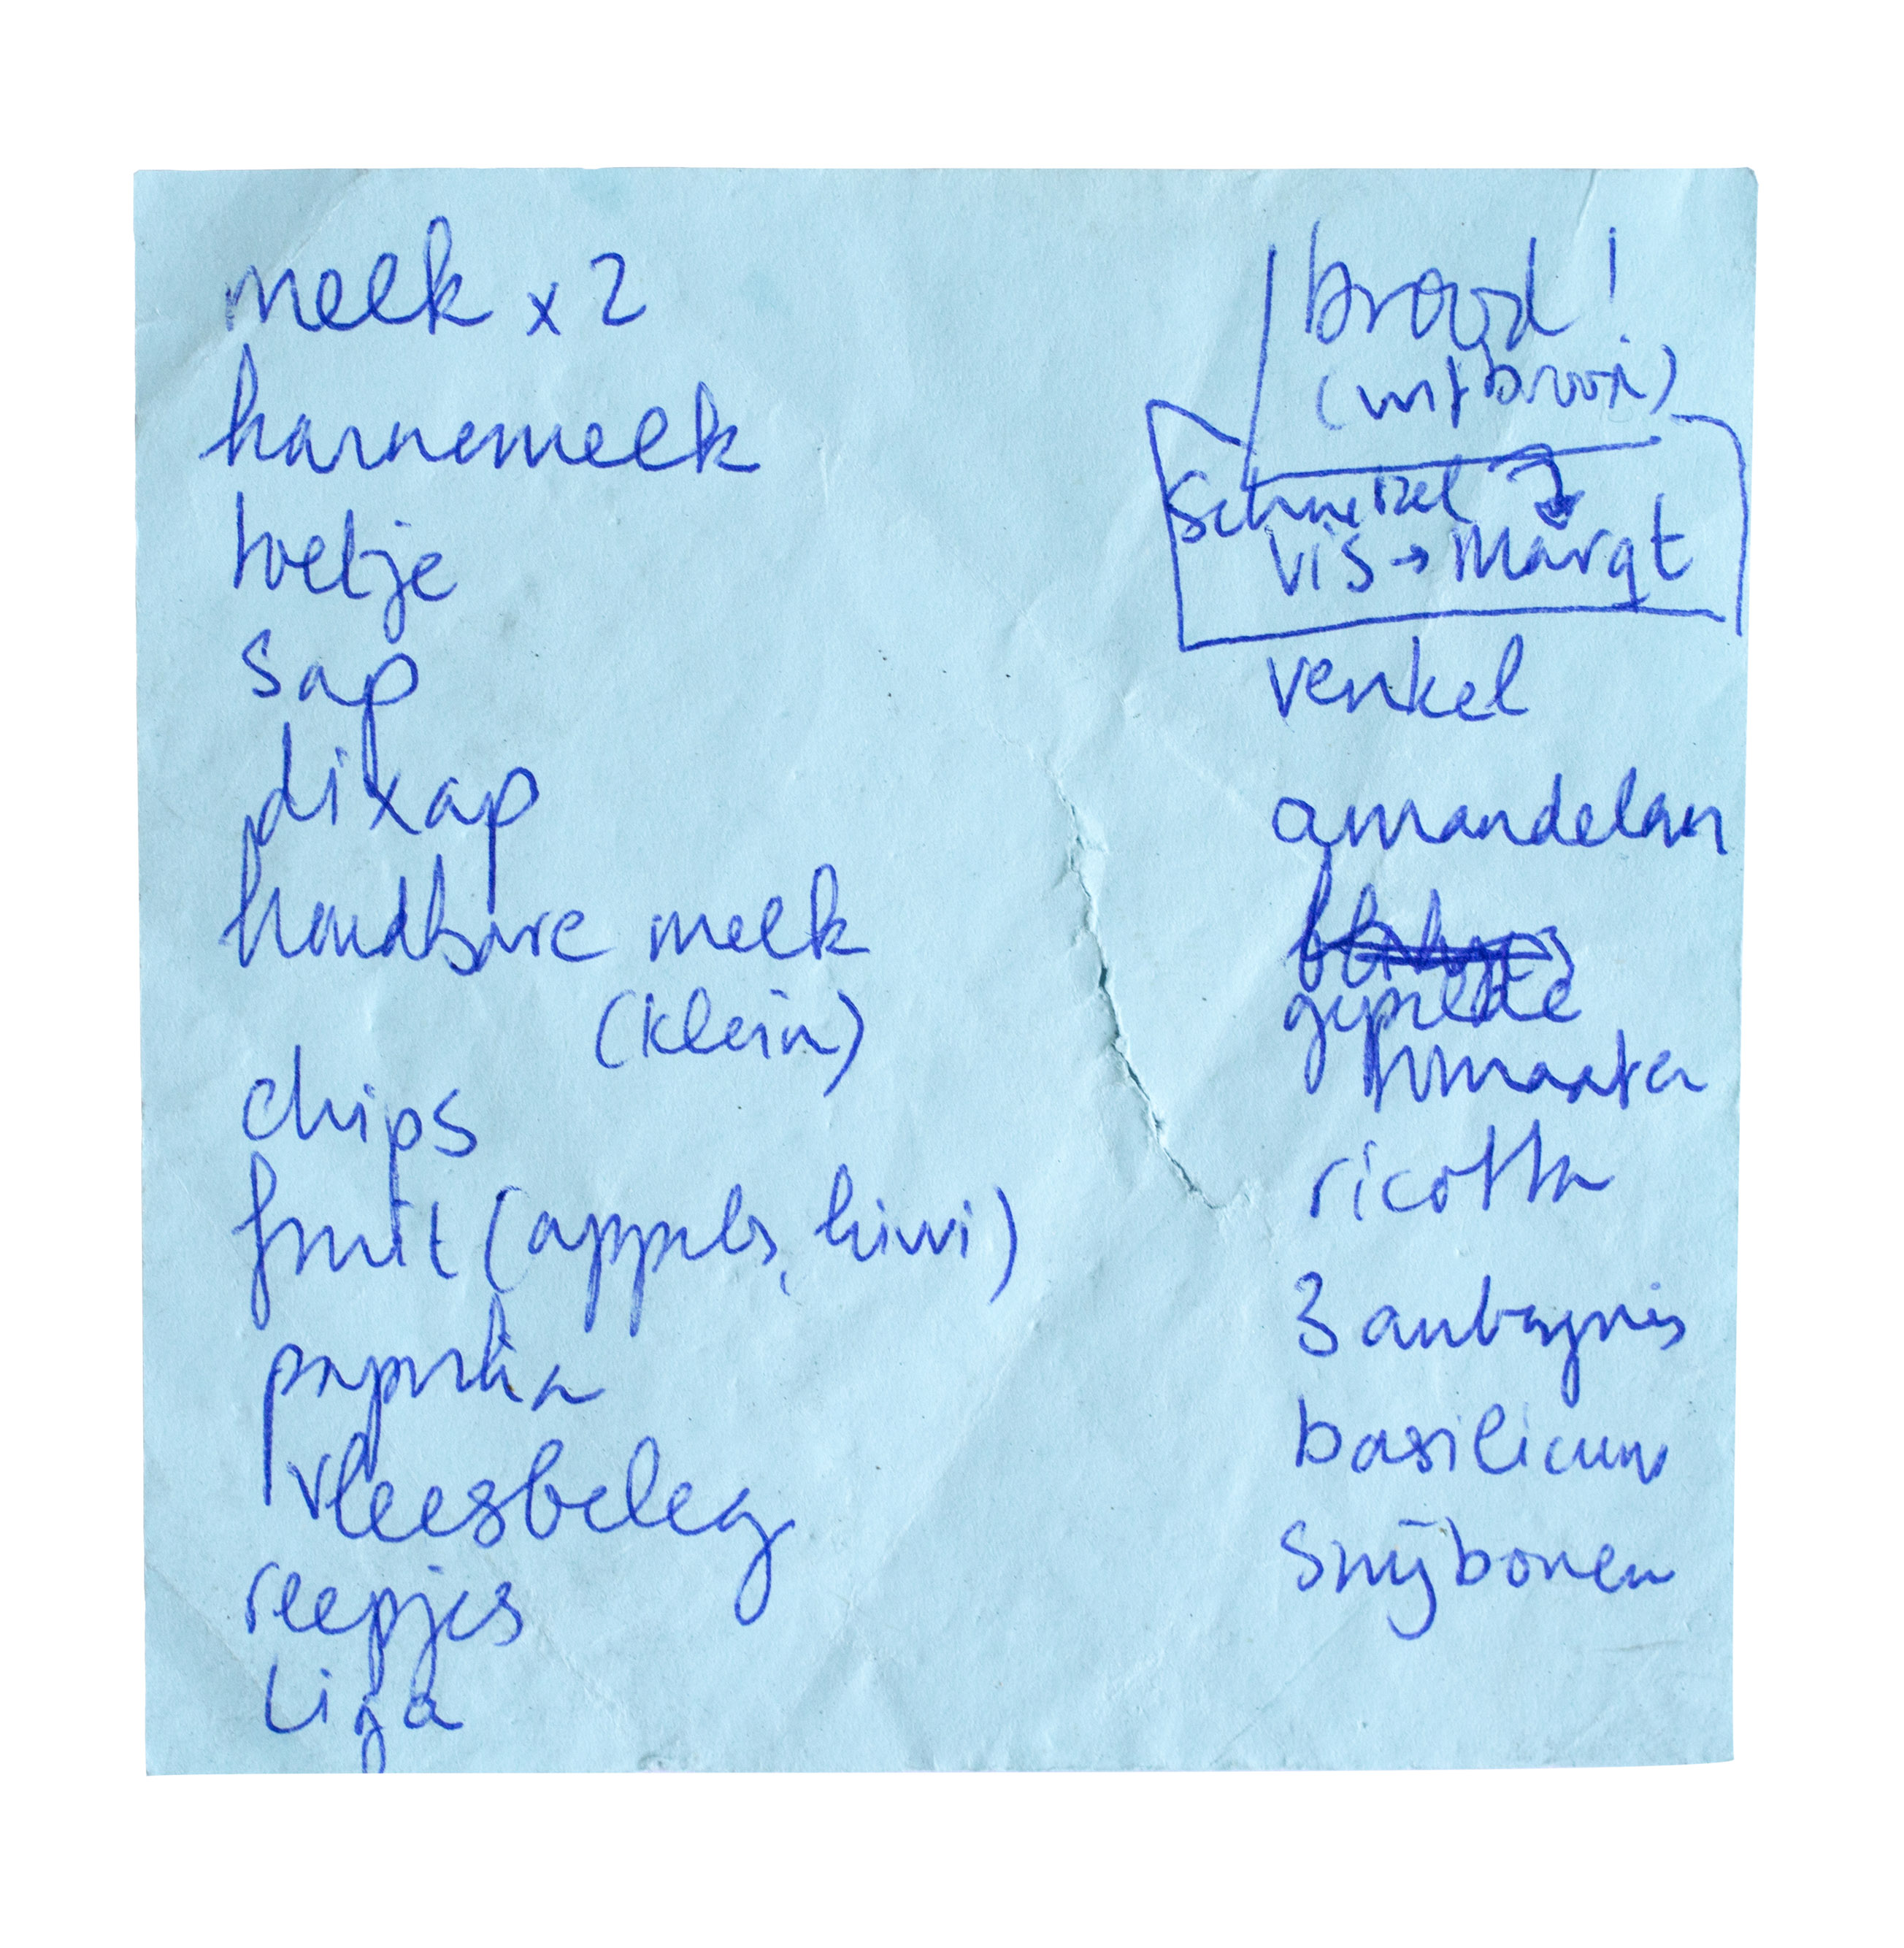 melk x 2
karnemelk
toetje
sap
dixap
houdbare melk
(klein)
chips
fruit (appels, kiwi)
paprika
vleesbeleg
reepjes
Liga
brood!
Schnitzel
vis → Marqt
venkel
amandelen
gepelde
tomaten
ricotta
3 aubergines
basilicum
snijbonen